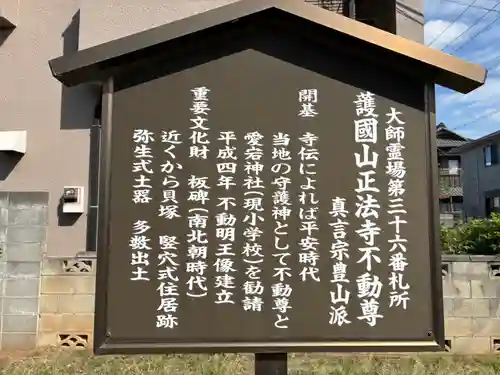 大師霊場第三十六番札所
護國山正法寺不動尊
真言宗豊山派
開基 寺伝によれば平安時代
当地の守護神として不動尊と
愛宕神社(現小学校)を勧請
平成四年 不動明王像建立
重要文化財 板碑(南北朝時代)
近くから貝塚 竪穴式住居跡
弥生式土器 多数出土